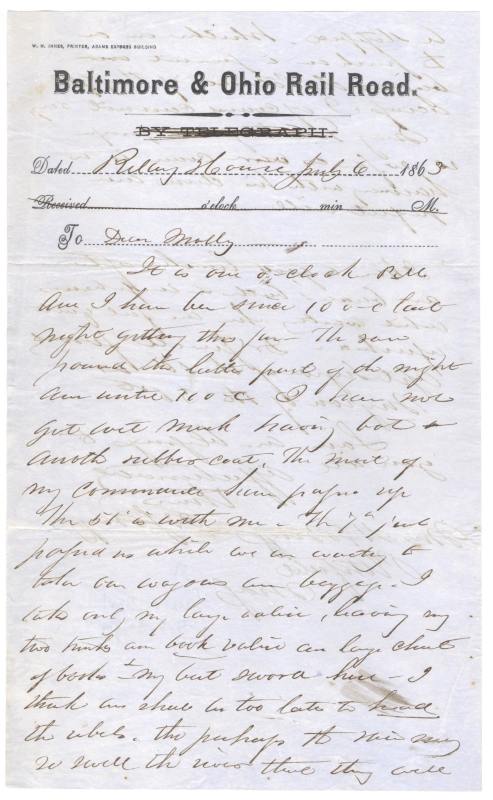 W. M. INNES, PRINTER, ADAMS EXPRESS BUILDING
Baltimore & Ohio Rail Road.
BY TELEGRAPH.
Dated Relay House July 6 1863
Received o'clock min M.
To Dear Molly
It is one o,clock P M
and I have been since 10 o-c last
night getting this far. The rain
poured the latter part of the night
and until 10 o c I have not
got wet much having bot
another rubber coat. The most of
my command has passed up
The 51st is with me - The 7th just
passed us while we are waiting to
take our wagons and baggage - I
take only my large valise, leaving my
two trunks and book valise and large chest
of books & my best sword here - I
think we shall be too late to head
the rebels - tho perhaps the rain may
so swell the river that they will